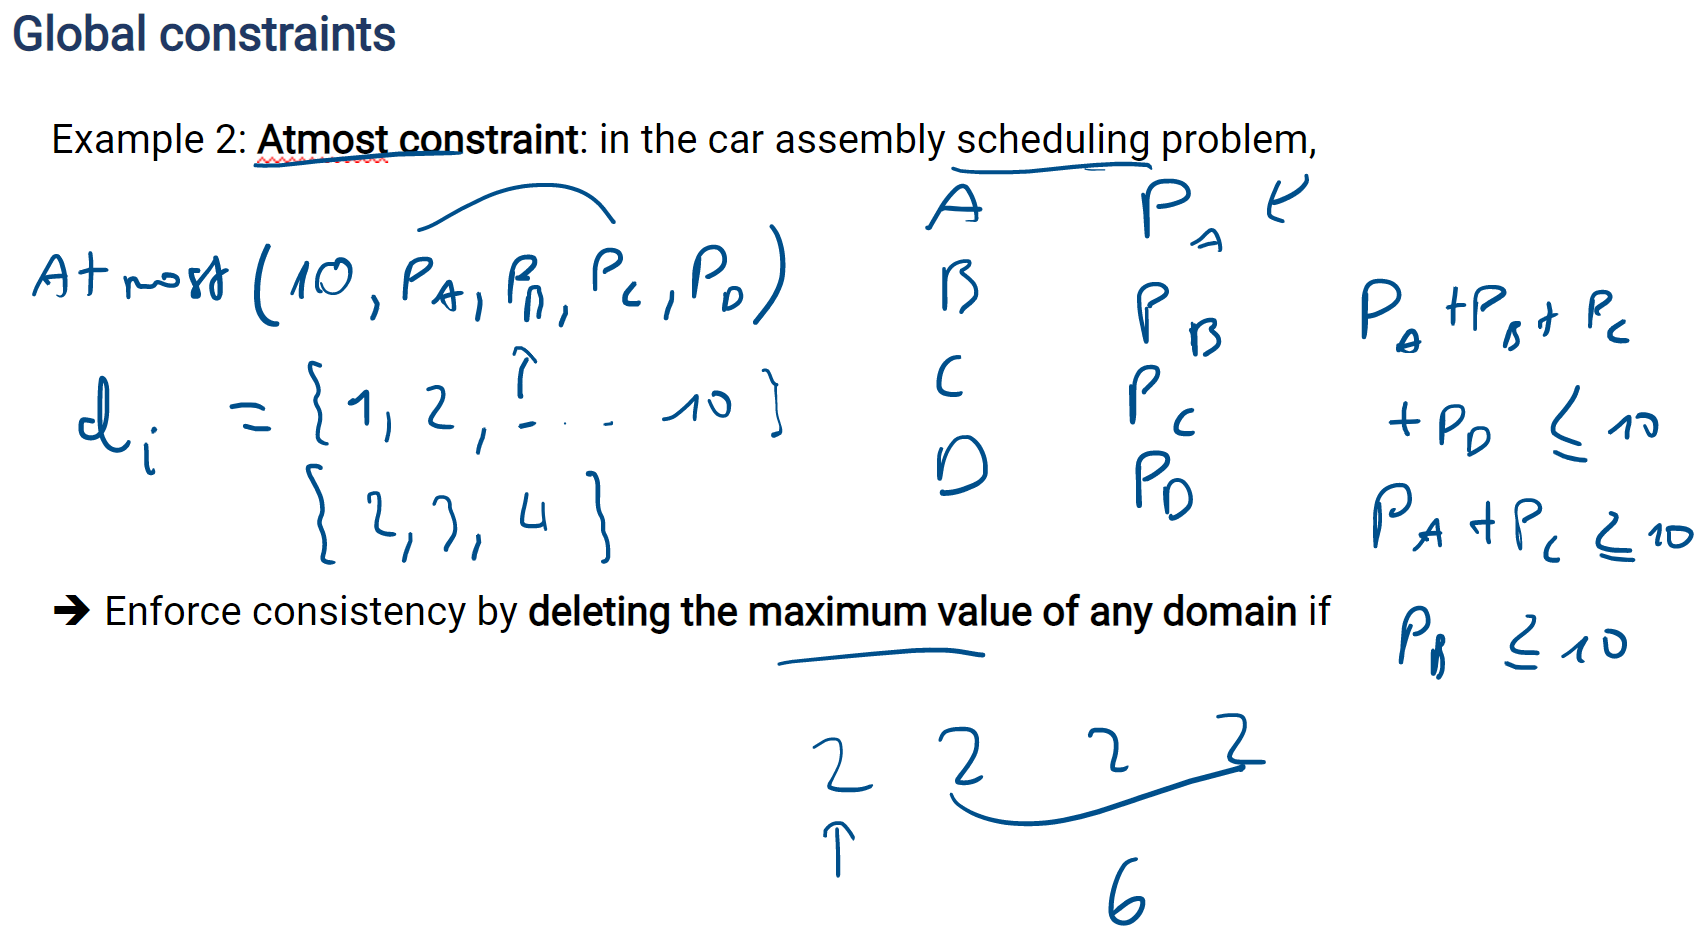 Global constraints
Example 2: Atmost constraint: in the car assembly scheduling problem,
A P_A
Atmost (10, P_A, P_B, P_C, P_D)
B P_B
P_A + P_B + P_C
d_i = {1, 2, ... 10}
C P_C
+ P_D ≤ 10
D P_D
{2, 3, 4}
P_A + P_C ≤ 10
➔ Enforce consistency by deleting the maximum value of any domain if
P_B ≤ 10
2 2 2 2
6